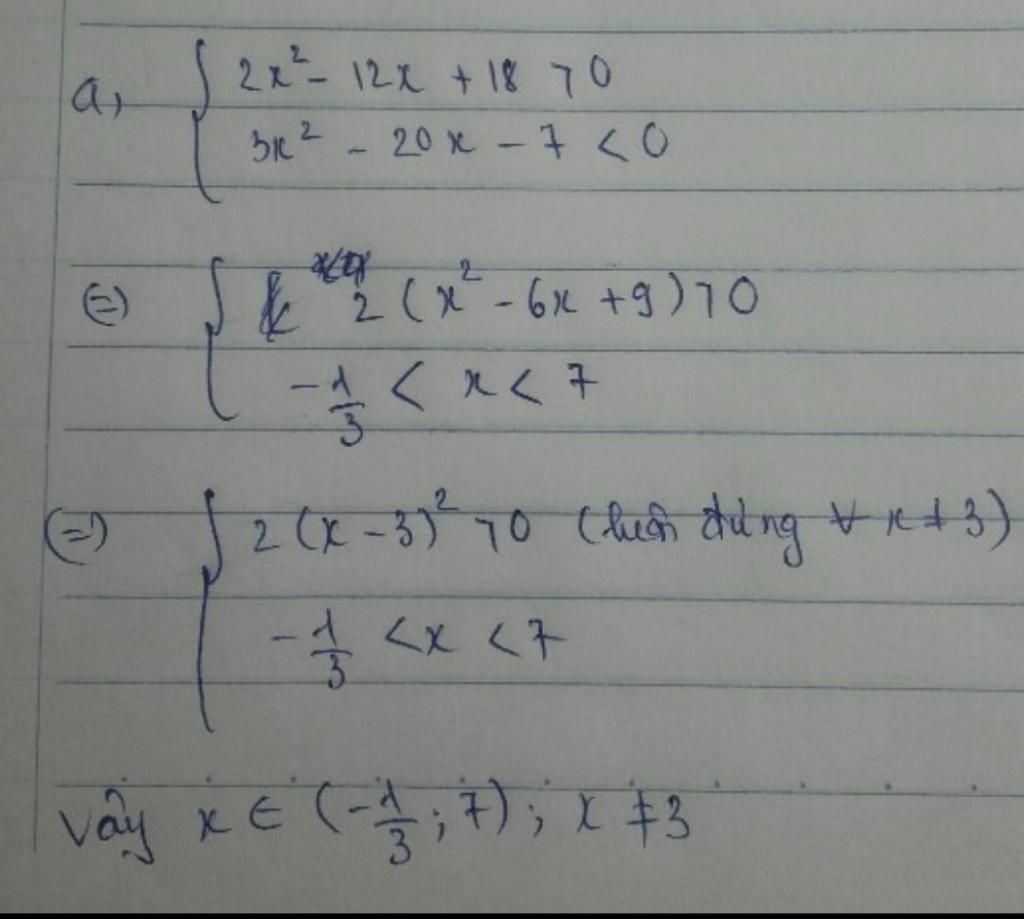 a, { 2x² - 12x + 18 > 0
3x² - 20x - 7 < 0
(=) { 2 (x² - 6x + 9) > 0
-1/3 < x < 7
(=) { 2 (x - 3)² > 0 (luôn đúng ∀ x ≠ 3)
-1/3 < x < 7
Vậy x ∈ (-1/3 ; 7) ; x ≠ 3